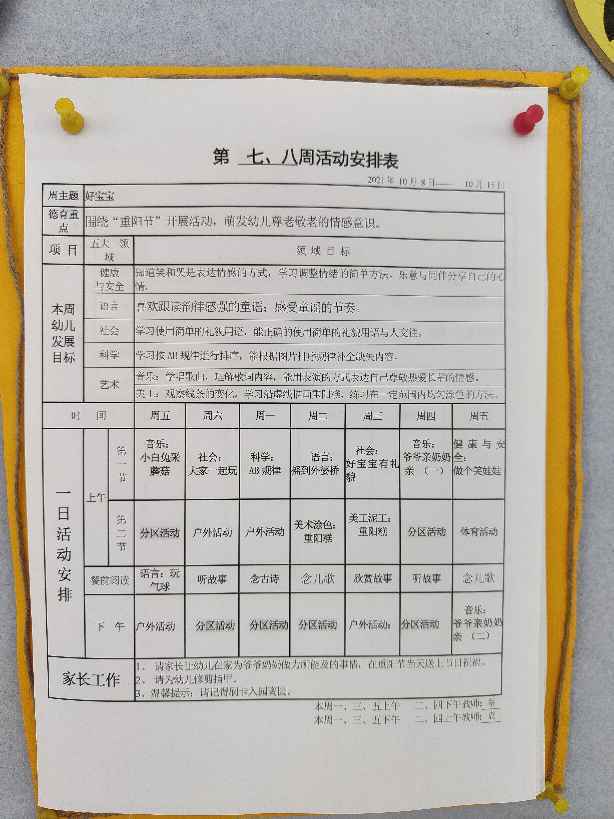 第 七、八周活动安排表
2021年10月8日—— 10月15日
周主题 好宝宝
德育重点 围绕“重阳节”开展活动，萌发幼儿尊老敬老的情感意识。
项 目 五大 领域 领 域 目 标
本周幼儿发展目标
健康与安全 知道笑和哭是表达情感的方式，学习调整情绪的简单方法，乐意与同伴分享自己的心情。
语言 喜欢跟读韵律感强的童谣；感受童谣的节奏。
社会 学习使用简单的礼貌用语，能正确的使用简单的礼貌用语与人交往。
科学 学习按AB规律进行排序，能根据图片排序规律补全缺失内容。
艺术 音乐：学唱歌曲，理解歌词内容，能用表演的方式表达自己尊敬热爱长辈的情感。
美工：观察线条的变化，学习沿虚线作画生动形，练习在一定范围内均匀涂色的方法。
时 间 周五 周六 周一 周二 周三 周四 周五
一日活动安排
上午
第一节 音乐：小白兔采蘑菇 社会：大家一起玩 科学：AB规律 语言：摇到外婆桥 社会：好宝宝有礼貌 音乐：爷爷亲奶奶亲（一） 健康与安全：做个笑娃娃
第二节 分区活动 户外活动 户外活动 美术涂色：重阳糕 美工泥工：重阳糕 分区活动 体育活动
餐前阅读 语言：玩气球 听故事 念古诗 念儿歌 欣赏故事 听故事 念儿歌
下 午 户外活动 分区活动 分区活动 分区活动 户外活动： 分区活动 音乐：爷爷亲奶奶亲（二）
家长工作
1、请家长让幼儿在家为爷爷奶奶做力所能及的事情，在重阳节当天送上节日祝福。
2、请为幼儿修剪指甲。
3、温馨提示：请记得刷卡入园离园。
本周一、三、五上午 二、四下午教师:
本周一、三、五下午 二、四上午教师: 袁